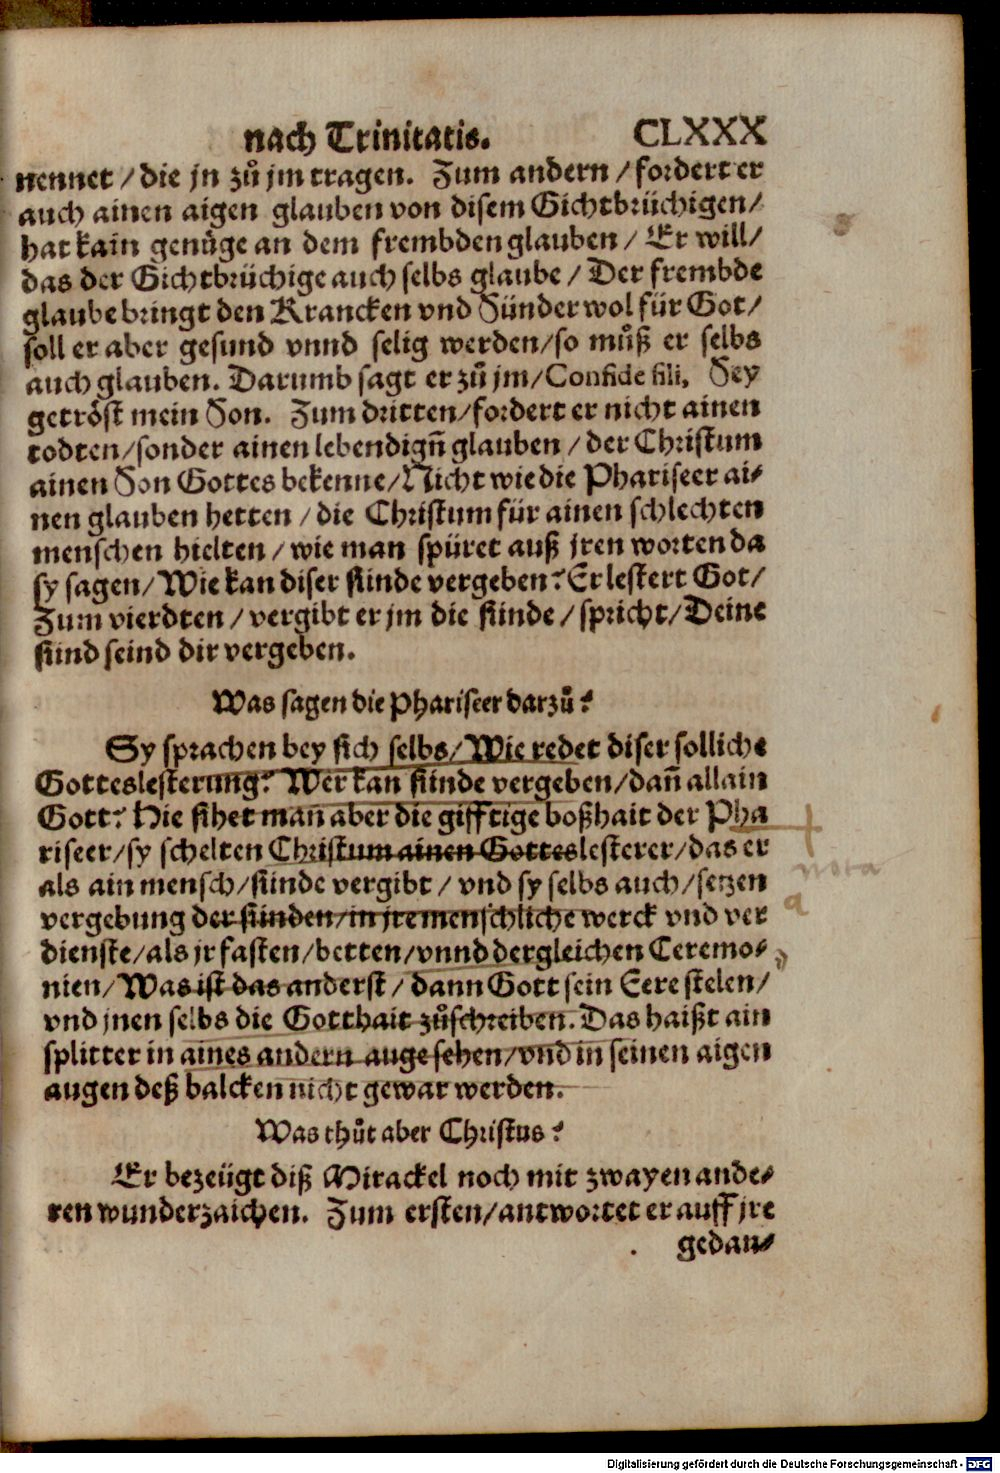 nach Trinitatis. CLXXX
nennet / die jn zuͦ jm tragen. Zum andern / fordert er
auch ainen aigen glauben von disem Gichtbrüchigen /
hat kain genuͤge an dem frembden glauben / Er will /
das der Gichtbrüchige auch selbs glaube / Der frembde
glaube bringt den Krancken vnd Sünder wol für Got /
soll er aber gesund vnnd selig werden / so muͦß er selbs
auch glauben. Darumb sagt er zuͦ jm / Confide fili, Sey
getroͤst mein Son. Zum dritten / fordert er nicht ainen
todten / sonder ainen lebendigñ glauben / der Christum
ainen Son Gottes bekenne / Nicht wie die Phariseer ai⸗
nen glauben hetten / die Christum für ainen schlechten
menschen hielten / wie man spüret auß jren worten da
sy sagen / Wie kan diser sünde vergeben? Er lestert Got /
Zum vierdten / vergibt er jm die sünde / spricht / Deine
sünd seind dir vergeben.
Was sagen die Phariseer darzuͦ?
Sy sprachen bey sich selbs / Wie redet diser solliche
Gotteslesterung? Wer kan sünde vergeben / dañ allain
Gott? Hie sihet mañ aber die gifftige boßhait der Pha
riseer / sy schelten Christum ainen Gotteslesterer / das er
als ain mensch / sünde vergibt / vnd sy selbs auch / setzen
nota
vergebung der sünden / in jre menschliche werck vnd ver
a
dienste / als jr fasten / betten / vnnd dergleichen Ceremo⸗
nien / Was ist das anderst / dann Gott sein Eere stelen /
vnd jnen selbs die Gotthait zuͦschreiben. Das haißt ain
splitter in aines andern auge sehen / vnd in seinen aigen
augen deß balcken nicht gewar werden.
Was thuͦt aber Christus?
Er bezeügt diß Mirackel noch mit zwayen ande⸗
ren wunderzaichen. Zum ersten / antwortet er auff jre
gedan⸗
Digitalisierung gefördert durch die Deutsche Forschungsgemeinschaft - DFG